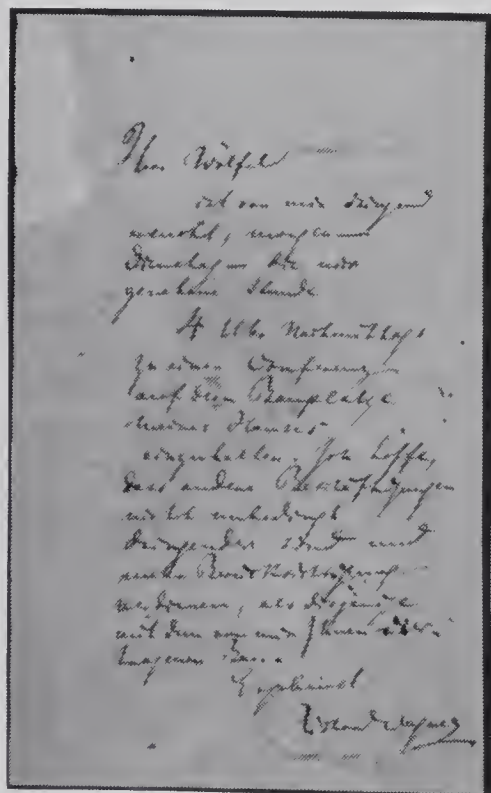 Herr Wölfel
ist von mir dringend
ersucht, morgen
Dienstag die mir
genehme Stunde
4 Uhr Nachmittags
zu einer Conferenz
auf dem Bauplatze
meines Hauses
einzuhalten. Ich hoffe,
dass andere Beschäftigungen
nicht unbedingt
dringender sind und
mehr Berücksichtigung
verdienen, als diejenige
mit dem von mir Ihnen über-
tragenen Bau.
Ergebenst
Richard Wagner